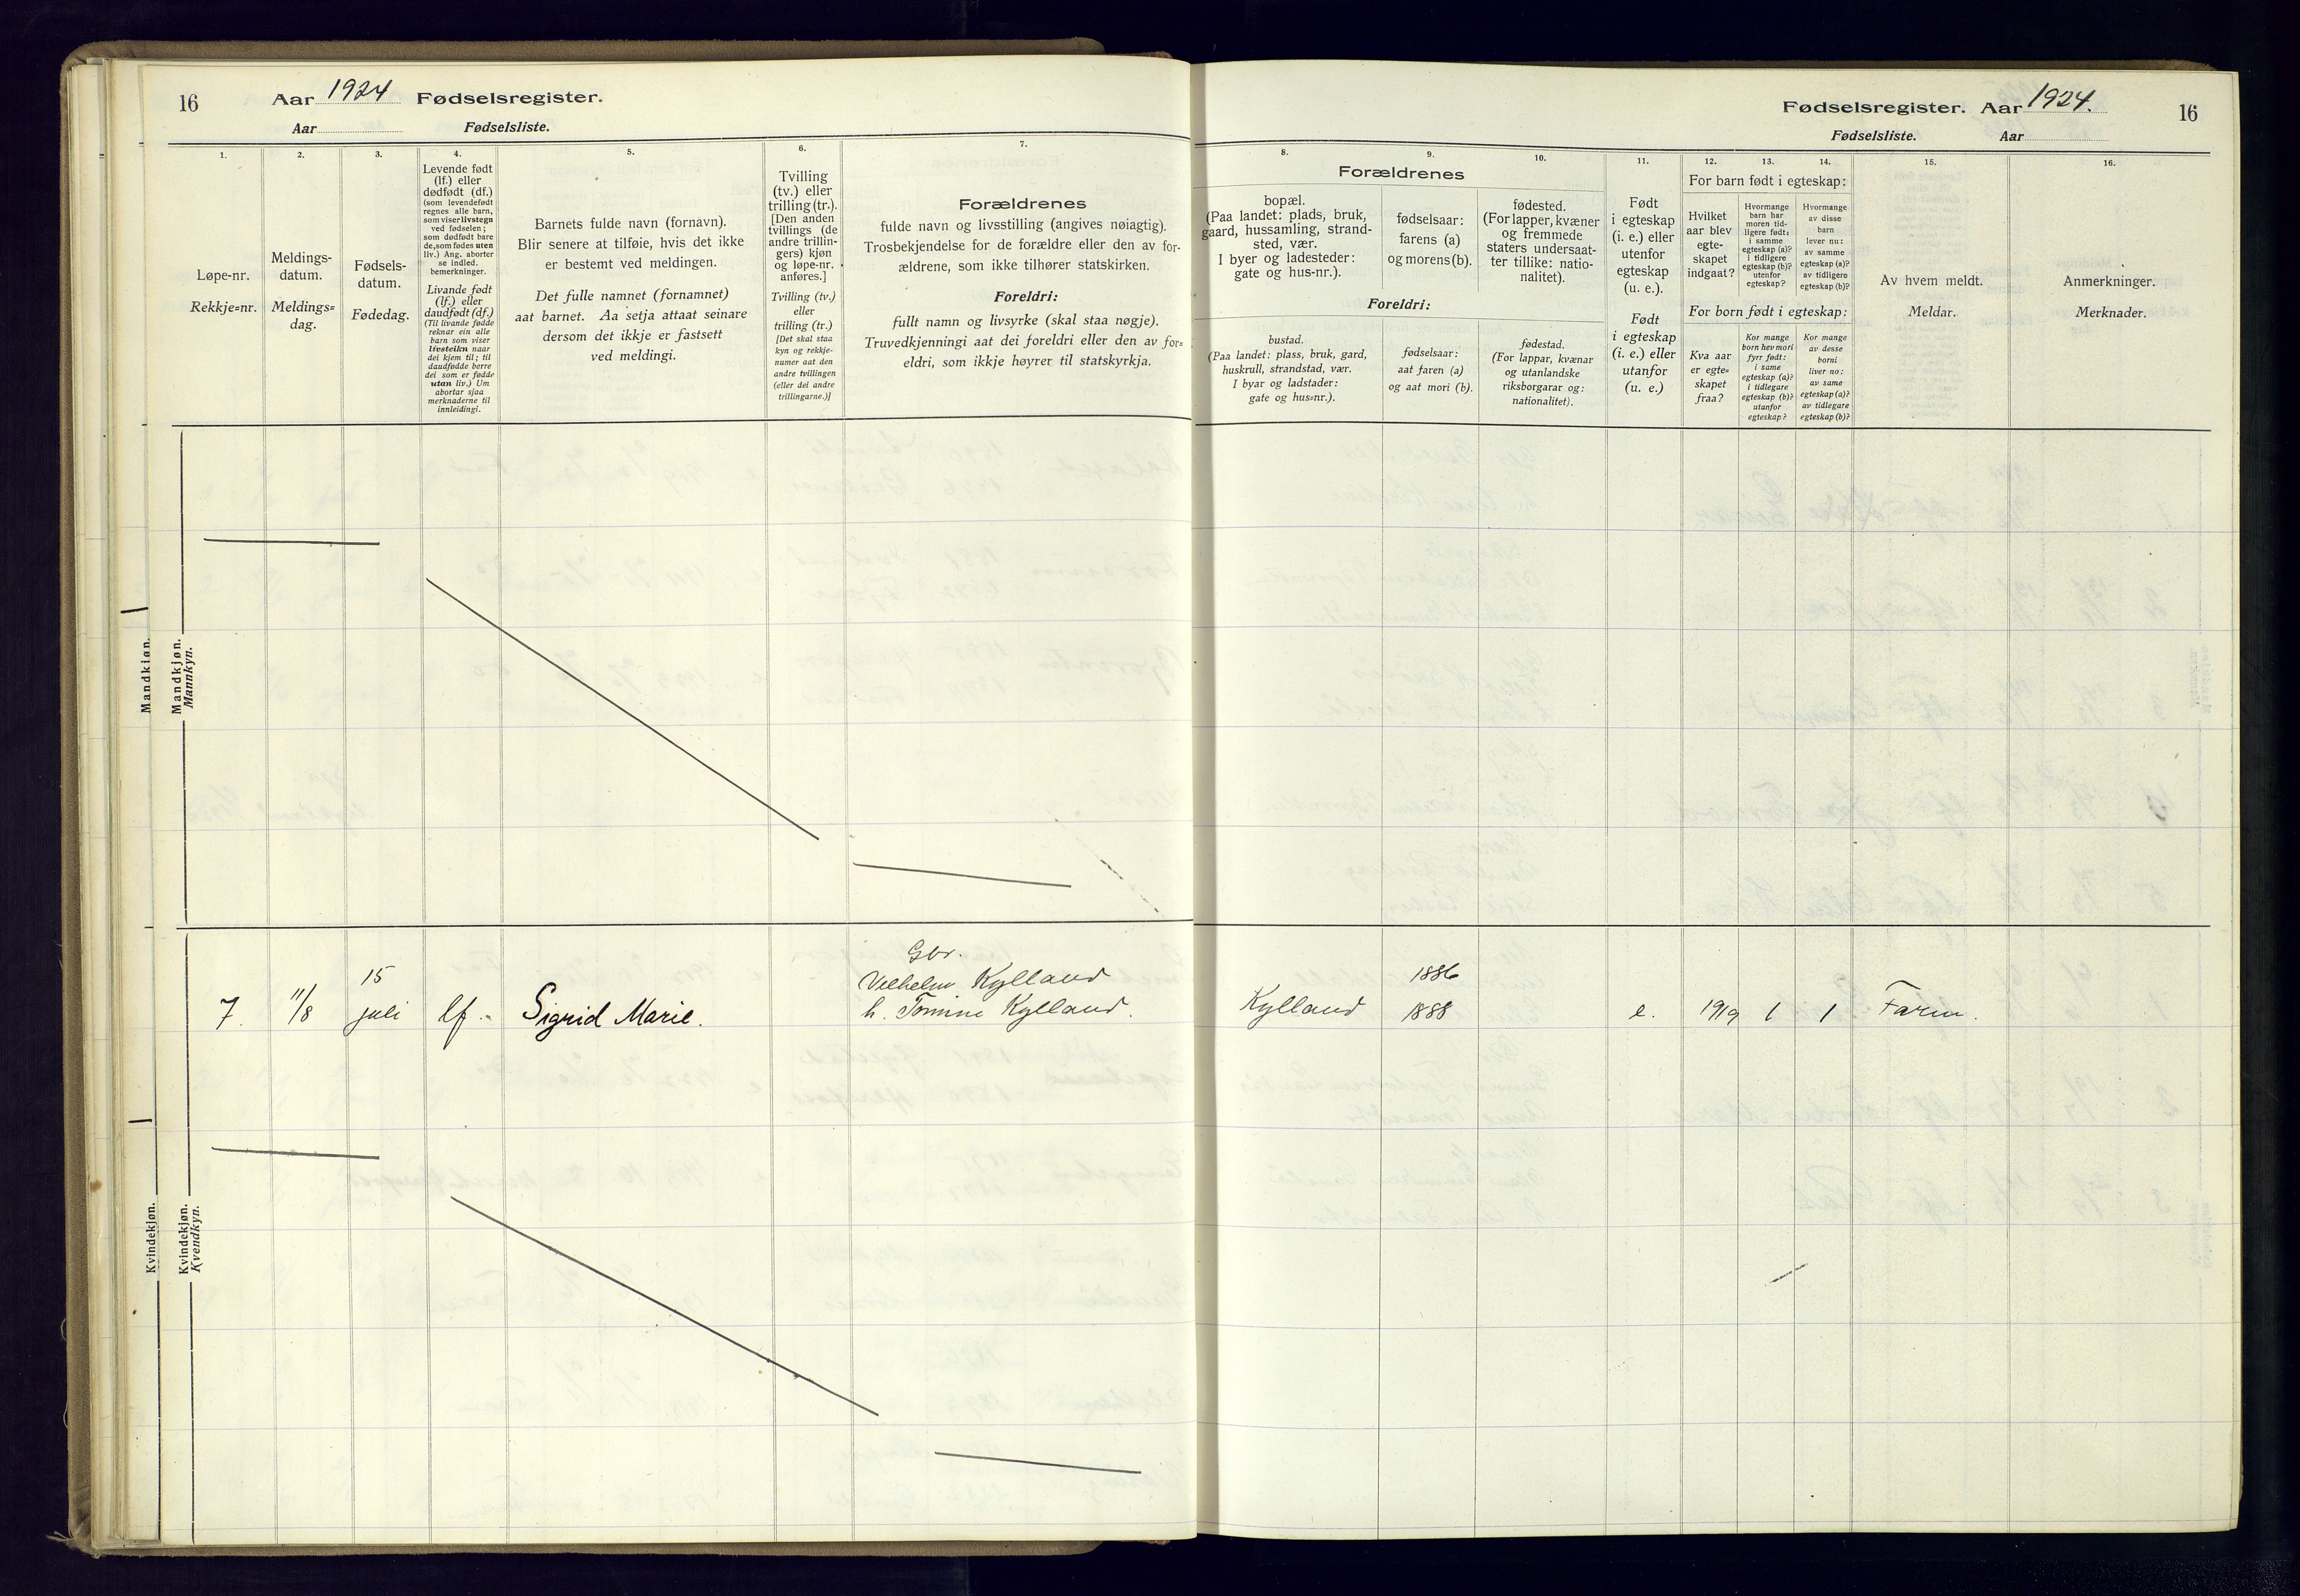 16 Aar 1924 Fødselsregister.
Aar Fødselsliste.
1.
Løpe-nr.
Rekkje=nr.
2.
Meldings-
datum.
Meldings=
dag.
3.
Fødsels-
datum.
Fødedag.
4.
Levende født
(lf.) eller
dødfødt (df.)
(som levendefødt
regnes alle barn,
som viser livstegn
ved fødselen;
som dødfødt bare
de, som fødes uten
liv.) Ang. aborter
se indled.
bemerkninger.
Livande født
(lf.) eller
daudfødt (df.)
(Til livande fødde
reknar ein alle
barn som viser
livsteikn naar
dei kjem til; til
daudfødde berre
dei som er fødde
utan liv.) Um
abortar sjaa
merknaderne til
innleidingi.
5.
Barnets fulde navn (fornavn).
Blir senere at tilføie, hvis det ikke
er bestemt ved meldingen.
Det fulle namnet (fornamnet)
aat barnet. Aa setja attaat seinare
dersom det ikkje er fastsett
ved meldingi.
6.
Tvilling
(tv.) eller
trilling (tr.).
[Den anden
tvillings (de
andre trillin-
gers) kjøn
og løpe-nr.
anføres.]
Tvilling (tv.)
eller
trilling (tr.)
[Det skal staa
kyn og rekkje-
numer aat den
andre tvillingen
(eller dei andre
trillingarne.)]
7.
Forældrenes
fulde navn og livsstilling (angives nøiagtig).
Trosbekjendelse for de forældre eller den av for-
ældrene, som ikke tilhører statskirken.
Foreldri:
fullt namn og livsyrke (skal staa nøgje).
Truvedkjenningi aat dei foreldri eller den av for=
eldri, som ikkje høyrer til statskyrkja.
Mandkjøn.
Mandkjøn.
Mannkyn.
Gbr.
15 Vilhelm Kylland
7. 11/8 juli lf. Sigrid Marie. h. Tomine Kylland.
Kvindekjøn.
Kvindekjøn.
Kvendkyn.
Fødselsregister. Aar 1924. 16
Fødselsliste. Aar
Forældrenes
8.
bopæl.
(Paa landet: plads, bruk,
gaard, hussamling, strand-
sted, vær.
I byer og ladesteder:
gate og hus-nr.).
9.
fødselsaar:
farens (a)
og morens (b).
10.
fødested.
(For lapper, kvæner
og fremmede
staters undersaat-
ter tillike: natio-
nalitet).
Foreldri:
bustad.
(Paa landet: plass, bruk, gard,
huskrull, strandstad, vær.
I byar og ladstader:
gate og hus=nr.).
fødselsaar:
aat faren (a)
og aat mori (b).
fødestad.
(For lappar, kvænar
og utanlandske
riksborgarar og:
nationalitet).
11.
Født
i egteskap
(i. e.) eller
utenfor
egteskap
(u. e.).
Født
i egteskap
(i. e.) eller
utanfor
(u. e.)
12. 13. 14.
For barn født i egteskap:
Hvilket
aar blev
egte-
skapet
indgaat?
Hvormange
barn har
moren tid-
ligere født:
i samme
egteskap (a)?
i tidligere
egteskap (b)?
utenfor
egteskap?
Hvormange
av disse
barn
lever nu:
av samme
egteskap (a)?
av tidligere
egteskap (b)?
For born født i egteskap:
Kva aar
er egte=
skapet
fraa?
Kor mange
born hev mori
fyrr født:
i same
egteskap (a)?
i tidlegare
egteskap (b)?
utanfor
egteskap?
Kor mange
av desse
borni
liver no:
av same
egteskap (a)?
av tidlegare
egteskap (b)?
15.
Av hvem meldt.
Meldar.
16.
Anmerkninger.
Merknader.
1886
Kylland 1888 e. 1919 1 1 Faren.